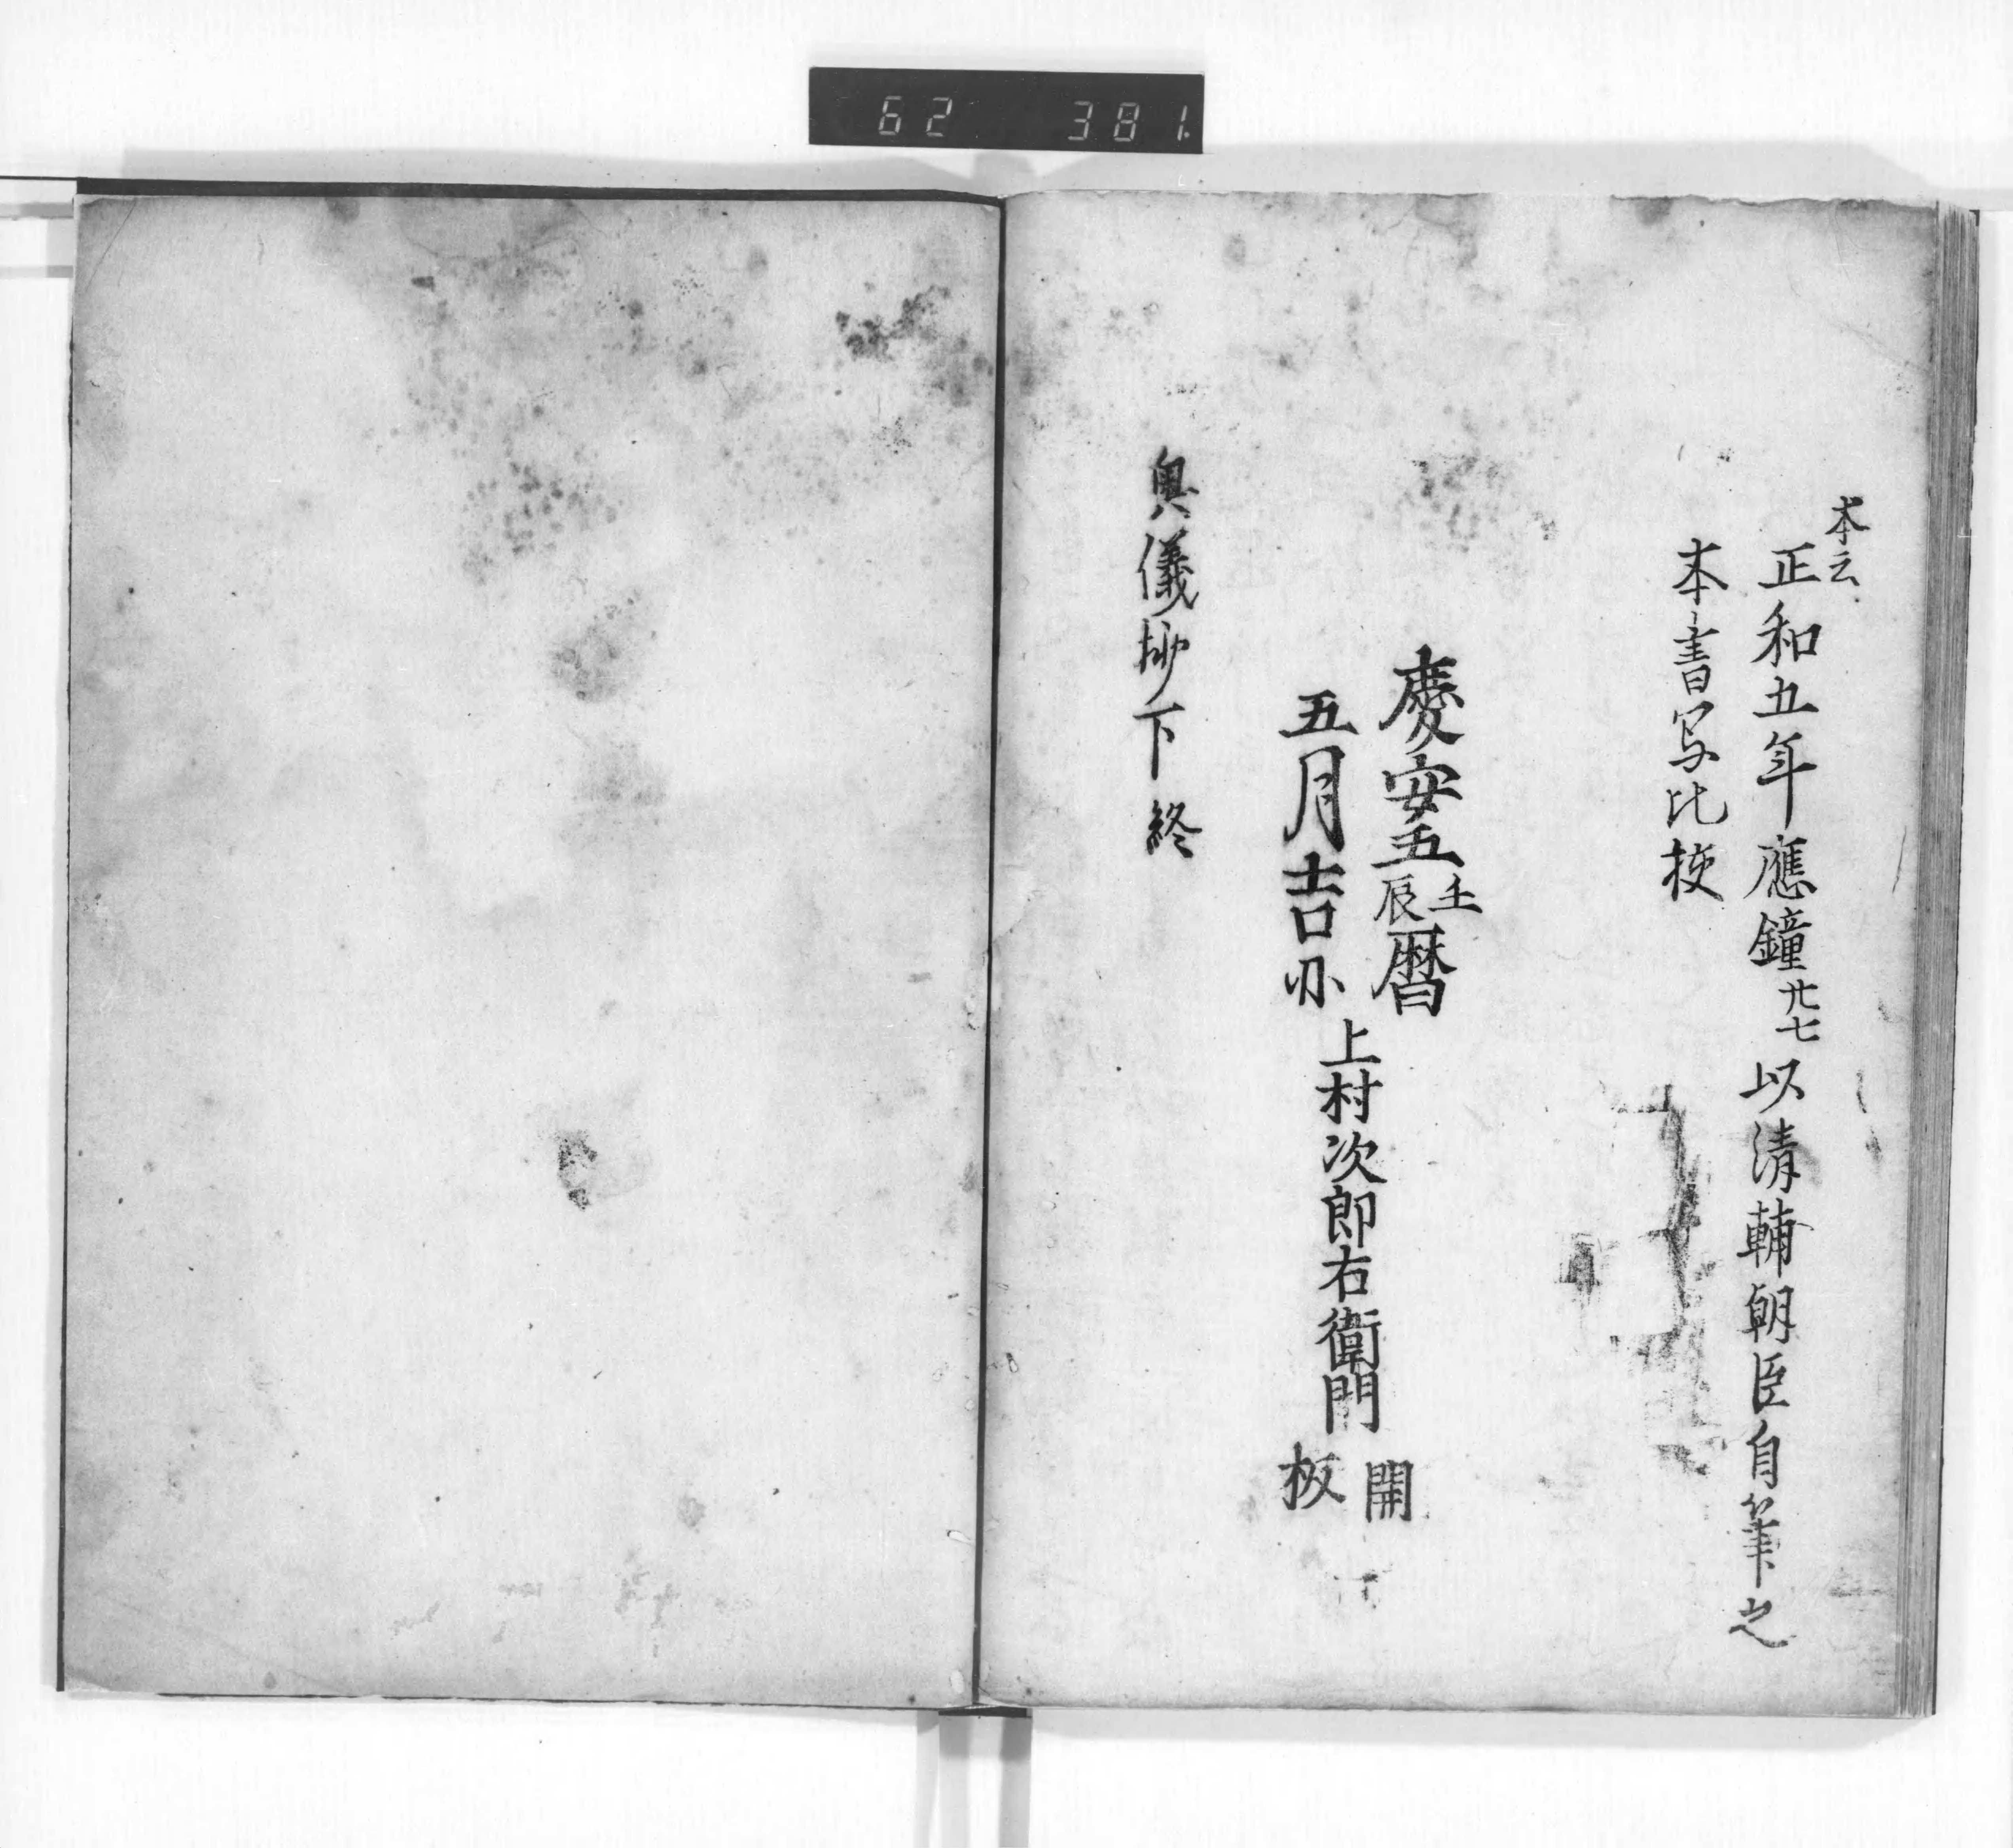 62 381
本云
正和五年應鐘廿七以清輔朝臣自筆之
本書写比挍
慶安五壬辰暦
五月吉日
上村次郎右衛門
開板
奥儀抄下終